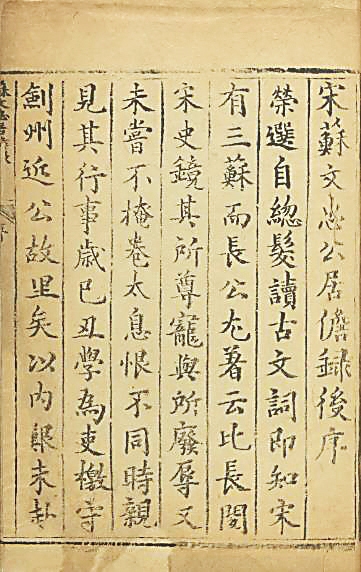 宋蘇文忠公居儋録後序
榮選自總髮讀古文詞即知宋
有三蘇而長公尤著云比長閱
宋史鏡其所尊寵與所廢辱又
未嘗不掩卷太息恨不同時親
見其行事歲己丑學為吏檄守
劍州近公故里矣以内艱未赴